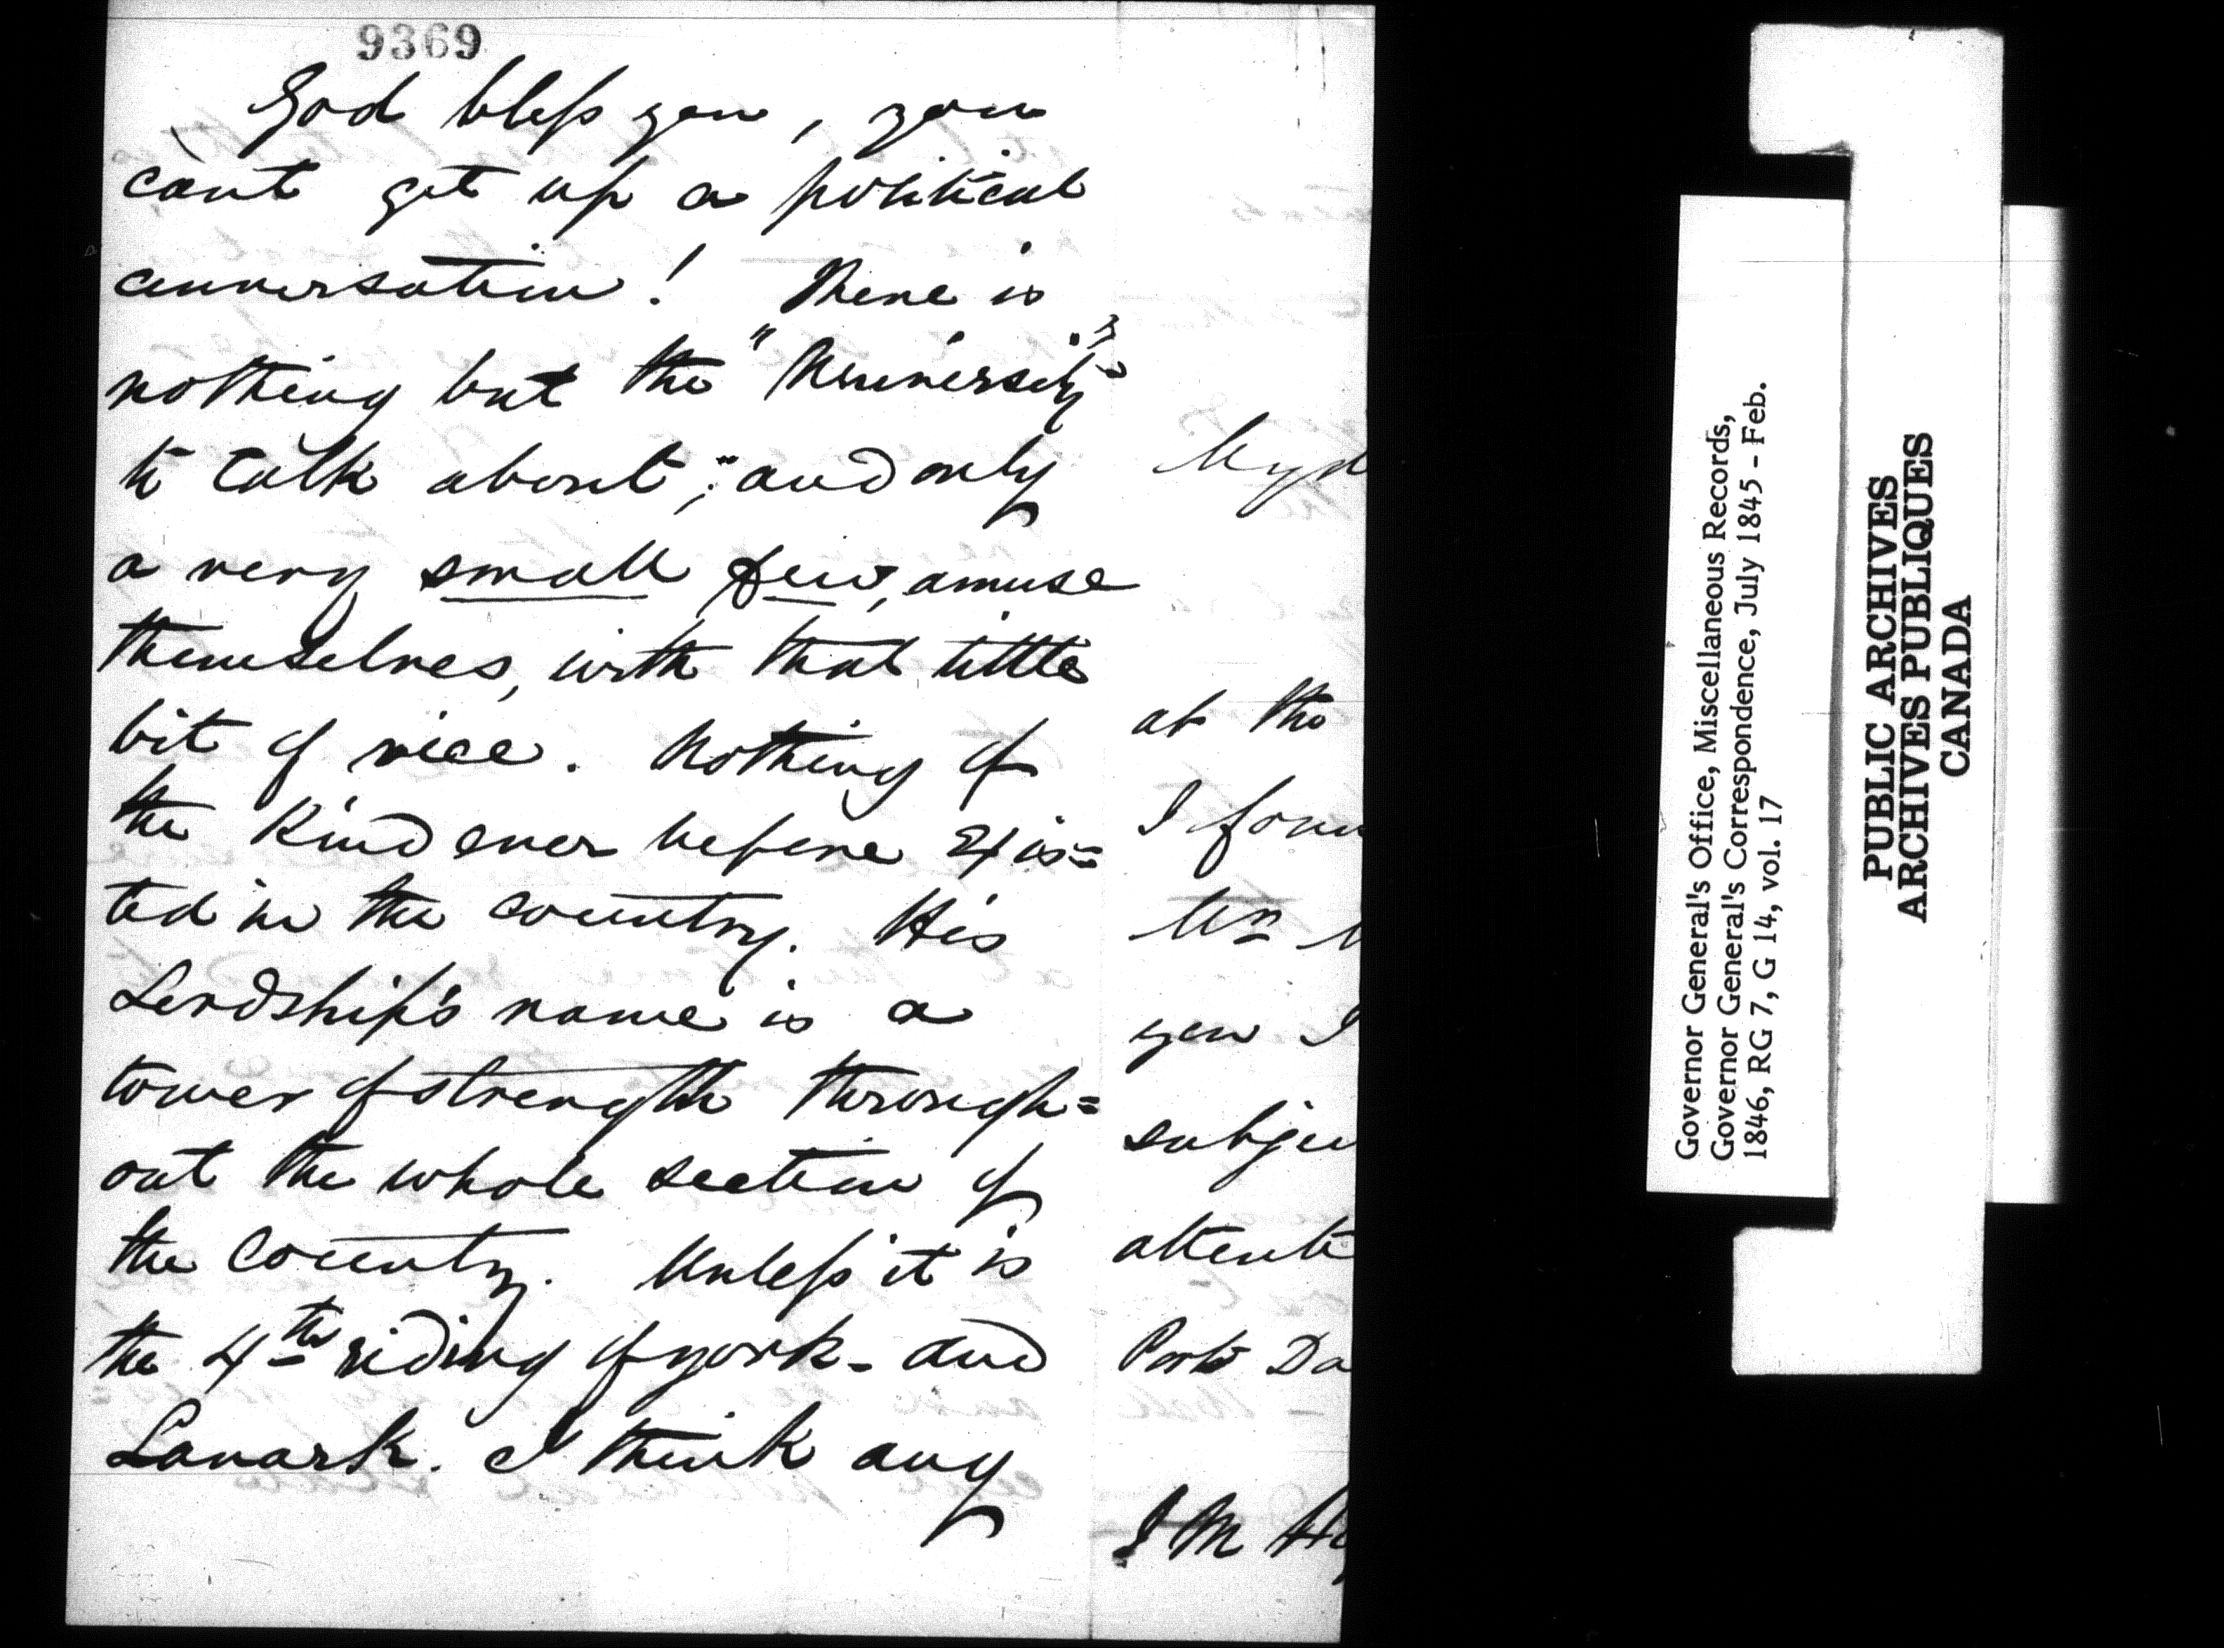 9369
God bless you, you
can't get up a political
conversation! There is
nothing but the "University"
to talk about; and only
a very small few, amuse
themselves, with that little
bit of vice. Nothing of
the kind ever before exis=
ted in the country. His
Lordship's name is a
tower of strength through=
out the whole section of
the country. Unless it is
the 4th riding of york - and
Lanark. I think any
My d
at the
I foun
Mr M
you I
subjec
attenti
Port Da
J M Hi
Governor General's Office, Miscellaneous Records,
Governor General's Correspondence, July 1845 - Feb.
1846, RG 7, G 14, vol. 17
PUBLIC ARCHIVES
ARCHIVES PUBLIQUES
CANADA